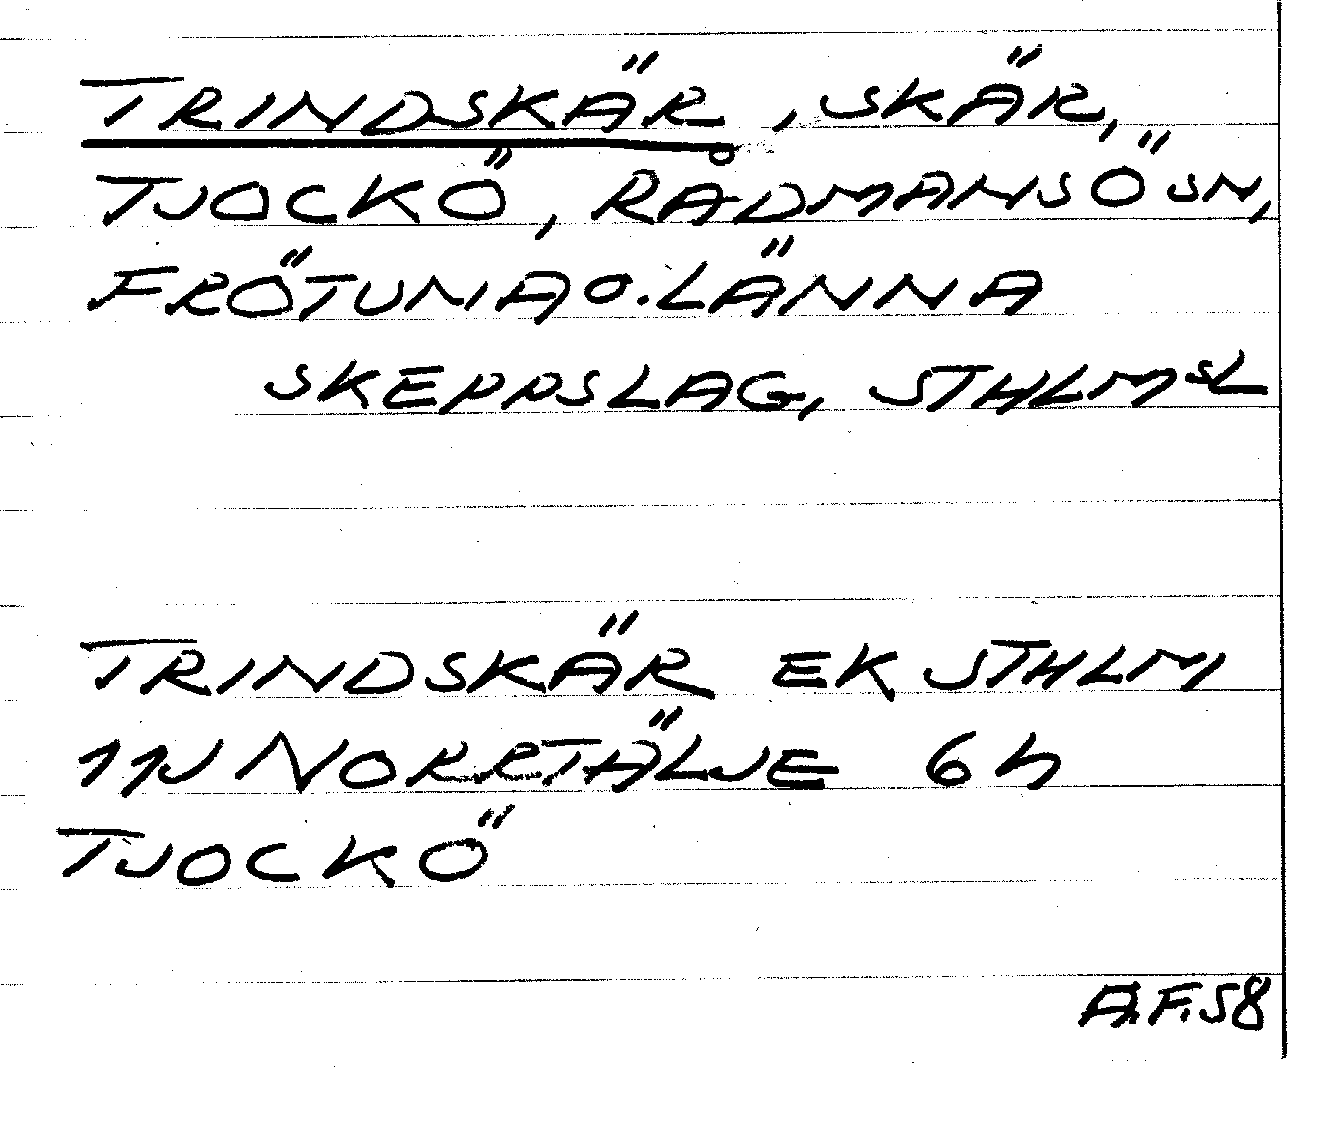 TRINDSKÄR, SKÄR,
TJOCKÖ, RÅDMANSÖ SN,
FRÖTUNA O. LÄNNA
SKEPPSLAG, STHLMSL
TRINDSKÄR EK STHLM
11J NORRTÄLJE 6h
TJOCKÖ
A.F. 58